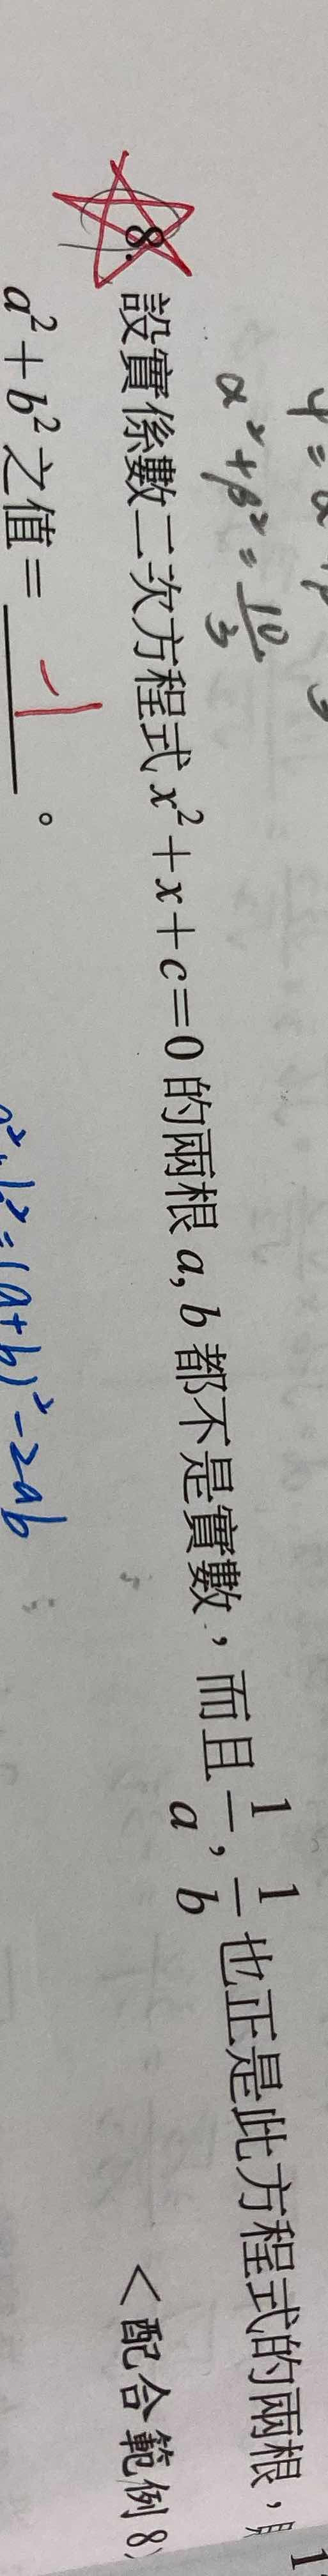 α²+β²=10/3
8. 設實係數二次方程式 x²+x+c=0 的兩根 a, b 都不是實數，而且 1/a, 1/b 也正是此方程式的兩根，
a²+b² 之值= -1 。
<配合範例 8>
=(a+b)²-2ab